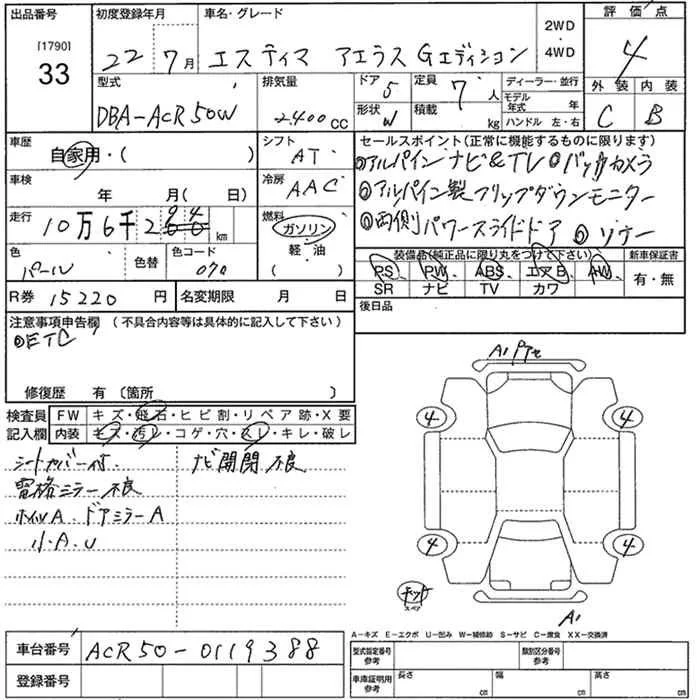 出品番号 [1790] 33
初度登録年月 22 7月
車名・グレード エスティマ アエラス Gエディション
2WD・4WD
評価点 4
型式 DBA-ACR50W
排気量 2.400cc
ドア 5
形状 W
定員 7人
積載 kg
ディーラー・並行
モデル年式 年
ハンドル 左・右
外装 C
内装 B
車歴 自家用・( )
シフト AT
車検 年 月( 日)
冷房 AAC
走行 10万6千294km
燃料 ガソリン・軽油 ( )
色 パール
色替
色コード 070
セールスポイント(正常に機能するものに限ります)
◎アルパインナビ&TV ◎バックカメラ
◎アルパイン製フリップダウンモニター
◎両側パワースライドドア ◎ソナー
装備品(純正品に限り丸をつけて下さい)
PS、PW、ABS、エアB、AW、
SR ナビ TV カワ
新車保証書
有・無
R券 15220円
名変期限 月 日
後日品
注意事項申告欄 (不具合内容等は具体的に記入して下さい)
◎ETC
修復歴 有 〔箇所 〕
検査員記入欄
FW キズ・飛石・ヒビ割・リペア跡・X要
内装 キズ・汚レ・コゲ・穴・スレ・キレ・破レ
シートカバー付.
ナビ開閉不良
電格ミラー不良
ホイルA.ドアミラーA
小.A.U
4
4
4
4
A1
A1
スペア
A-キズ E-エクボ U-凹み W-補修跡 S-サビ C-腐食 XX-交換済
車台番号 ACR50-0119388
登録番号
型式指定番号 参考
類別区分番号 参考
車庫証明用 参考
長さ cm
幅 cm
高さ cm